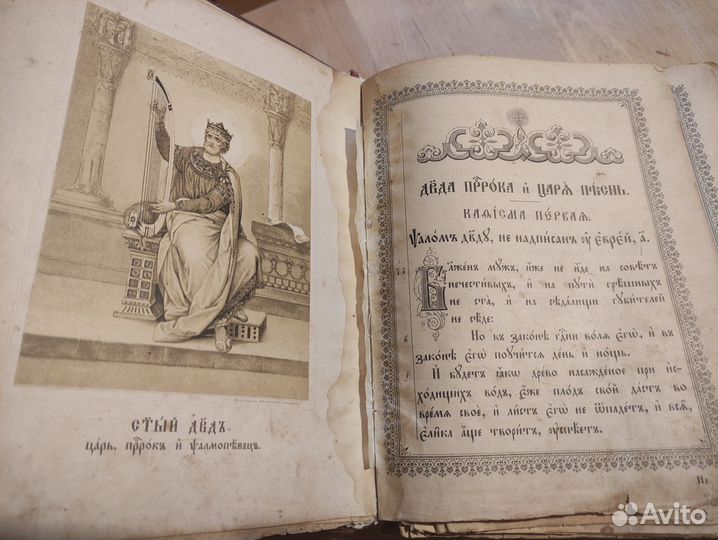 СТ҃ЫЙ ДВ҃ДЪ
царь, прⷪ҇рокъ и҆ ѱалмопѣвецъ.
ДВ҃ДА ПРⷪ҇РОКА И҆ ЦАРѦ ПѢСНЬ.
КАѲІСМА ПЕРВАѦ.
Ѱаломъ дв҃ду, не надписан ᲂу҆ є҆врей, а҃.
Блаженъ мужъ, и҆же не и҆де на совѣтъ
нечестивыхъ, и҆ на пути грѣшныхъ
не ста, и҆ на сѣдалищи губителей
не сѣде:
Но въ законѣ гдⷭ҇ни волѧ є҆гѡ̀, и҆ въ
законѣ є҆гѡ̀ поучитсѧ день и҆ нощь.
И҆ будетъ ꙗ҆кѡ древо насажденое при и҆с-
ходищихъ водъ, є҆же плодъ свой дастъ во
времѧ свое, и҆ листъ є҆гѡ̀ не ѿпадетъ, и҆ всѧ̑,
є҆лика аще творитъ, ᲂу҆спѣетъ.
Avito